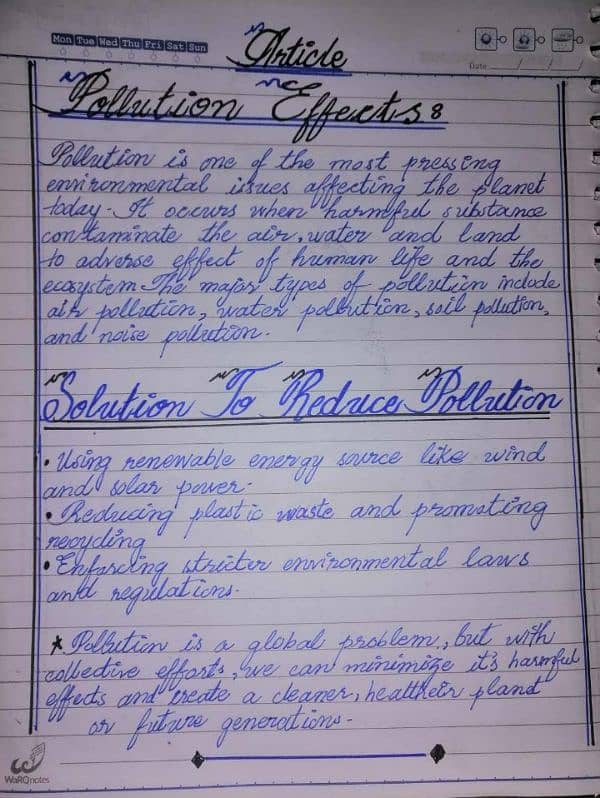 Mon Tue Wed Thu Fri Sat Sun
Article
Date
Pollution Effects:
Pollution is one of the most pressing
environmental issues affecting the planet
today. It occurs when harmful substance
contaminate the air, water and land
to adverse effect of human life and the
ecosystem. The major types of pollution include
air pollution, water pollution, soil pollution,
and noise pollution.
Solution To Reduce Pollution
• Using renewable energy source like wind
and solar power.
• Reducing plastic waste and promoting
recycling
• Enforcing stricter environmental laws
and regulations.
* Pollution is a global problem, but with
collective efforts, we can minimize it's harmful
effects and create a cleaner, healtheir planet
or future generations.
WaRQnotes